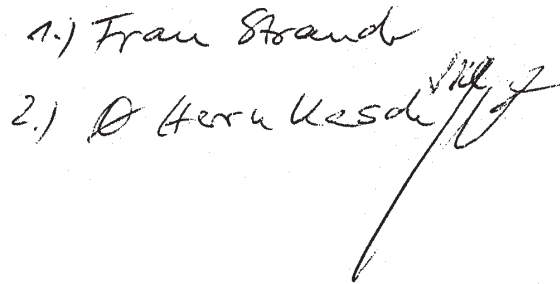 1.) Frau Strauch
2.) Ø Herrn Kesch